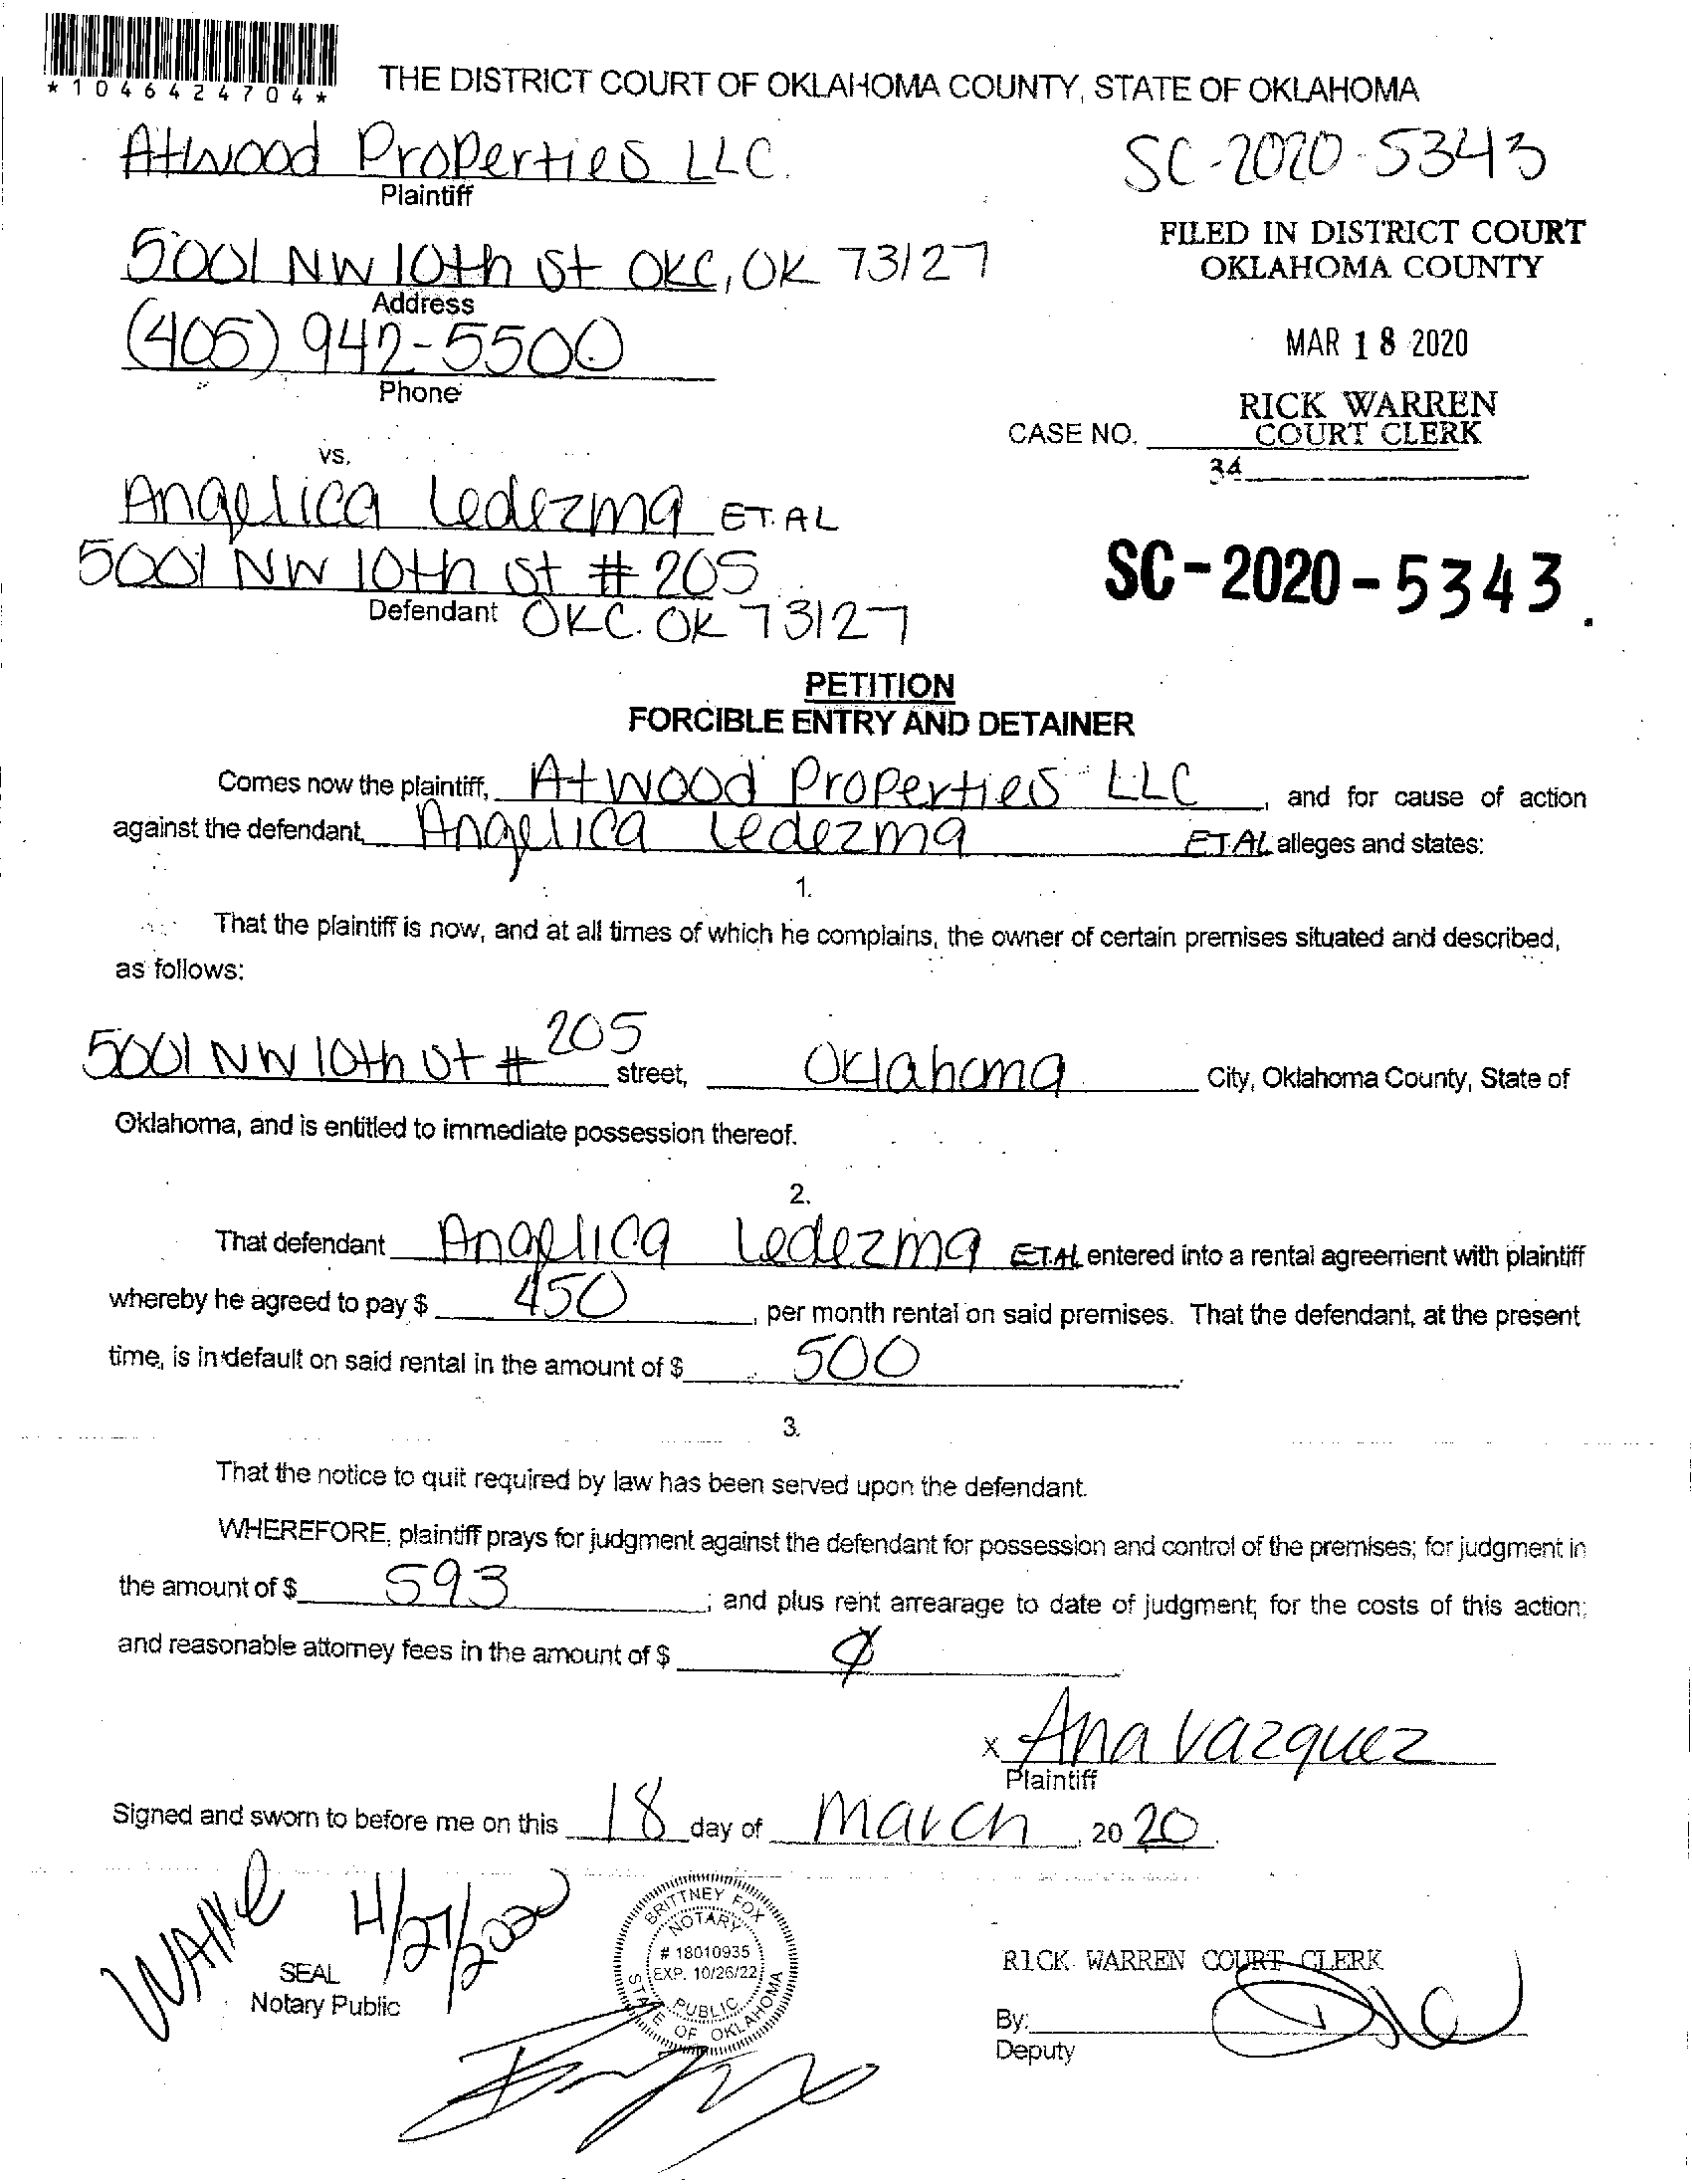 *1046424704*
THE DISTRICT COURT OF OKLAHOMA COUNTY, STATE OF OKLAHOMA
Atwood Properties LLC.
Plaintiff
SC-2020-5343
5001 NW 10th St OKC, OK 73127
Address
FILED IN DISTRICT COURT
OKLAHOMA COUNTY
(405) 942-5500
Phone
MAR 18 2020
RICK WARREN
COURT CLERK
CASE NO.
34
vs.
Angelica Ledezma ET. AL
5001 NW 10th St # 205
Defendant OKC. OK 73127
SC-2020-5343.
PETITION
FORCIBLE ENTRY AND DETAINER
Comes now the plaintiff, Atwood Properties LLC, and for cause of action
against the defendant, Angelica Ledezma ET.AL alleges and states:
1.
That the plaintiff is now, and at all times of which he complains, the owner of certain premises situated and described,
as follows:
5001 NW 10th St # 205 street, Oklahoma City, Oklahoma County, State of
Oklahoma, and is entitled to immediate possession thereof.
2.
That defendant Angelica Ledezma ET.AL entered into a rental agreement with plaintiff
whereby he agreed to pay $ 450, per month rental on said premises. That the defendant, at the present
time, is in default on said rental in the amount of $ 500.
3.
That the notice to quit required by law has been served upon the defendant.
WHEREFORE, plaintiff prays for judgment against the defendant for possession and control of the premises; for judgment in
the amount of $ 593; and plus rent arrearage to date of judgment; for the costs of this action;
and reasonable attorney fees in the amount of $ ∅
x Ana Vazquez
Plaintiff
Signed and sworn to before me on this 18 day of March, 2020.
4/27/2020
SEAL
Notary Public
BRITTNEY FOX
NOTARY
# 18010935
EXP. 10/26/22
PUBLIC
STATE OF OKLAHOMA
RICK WARREN COURT CLERK
By:
Deputy